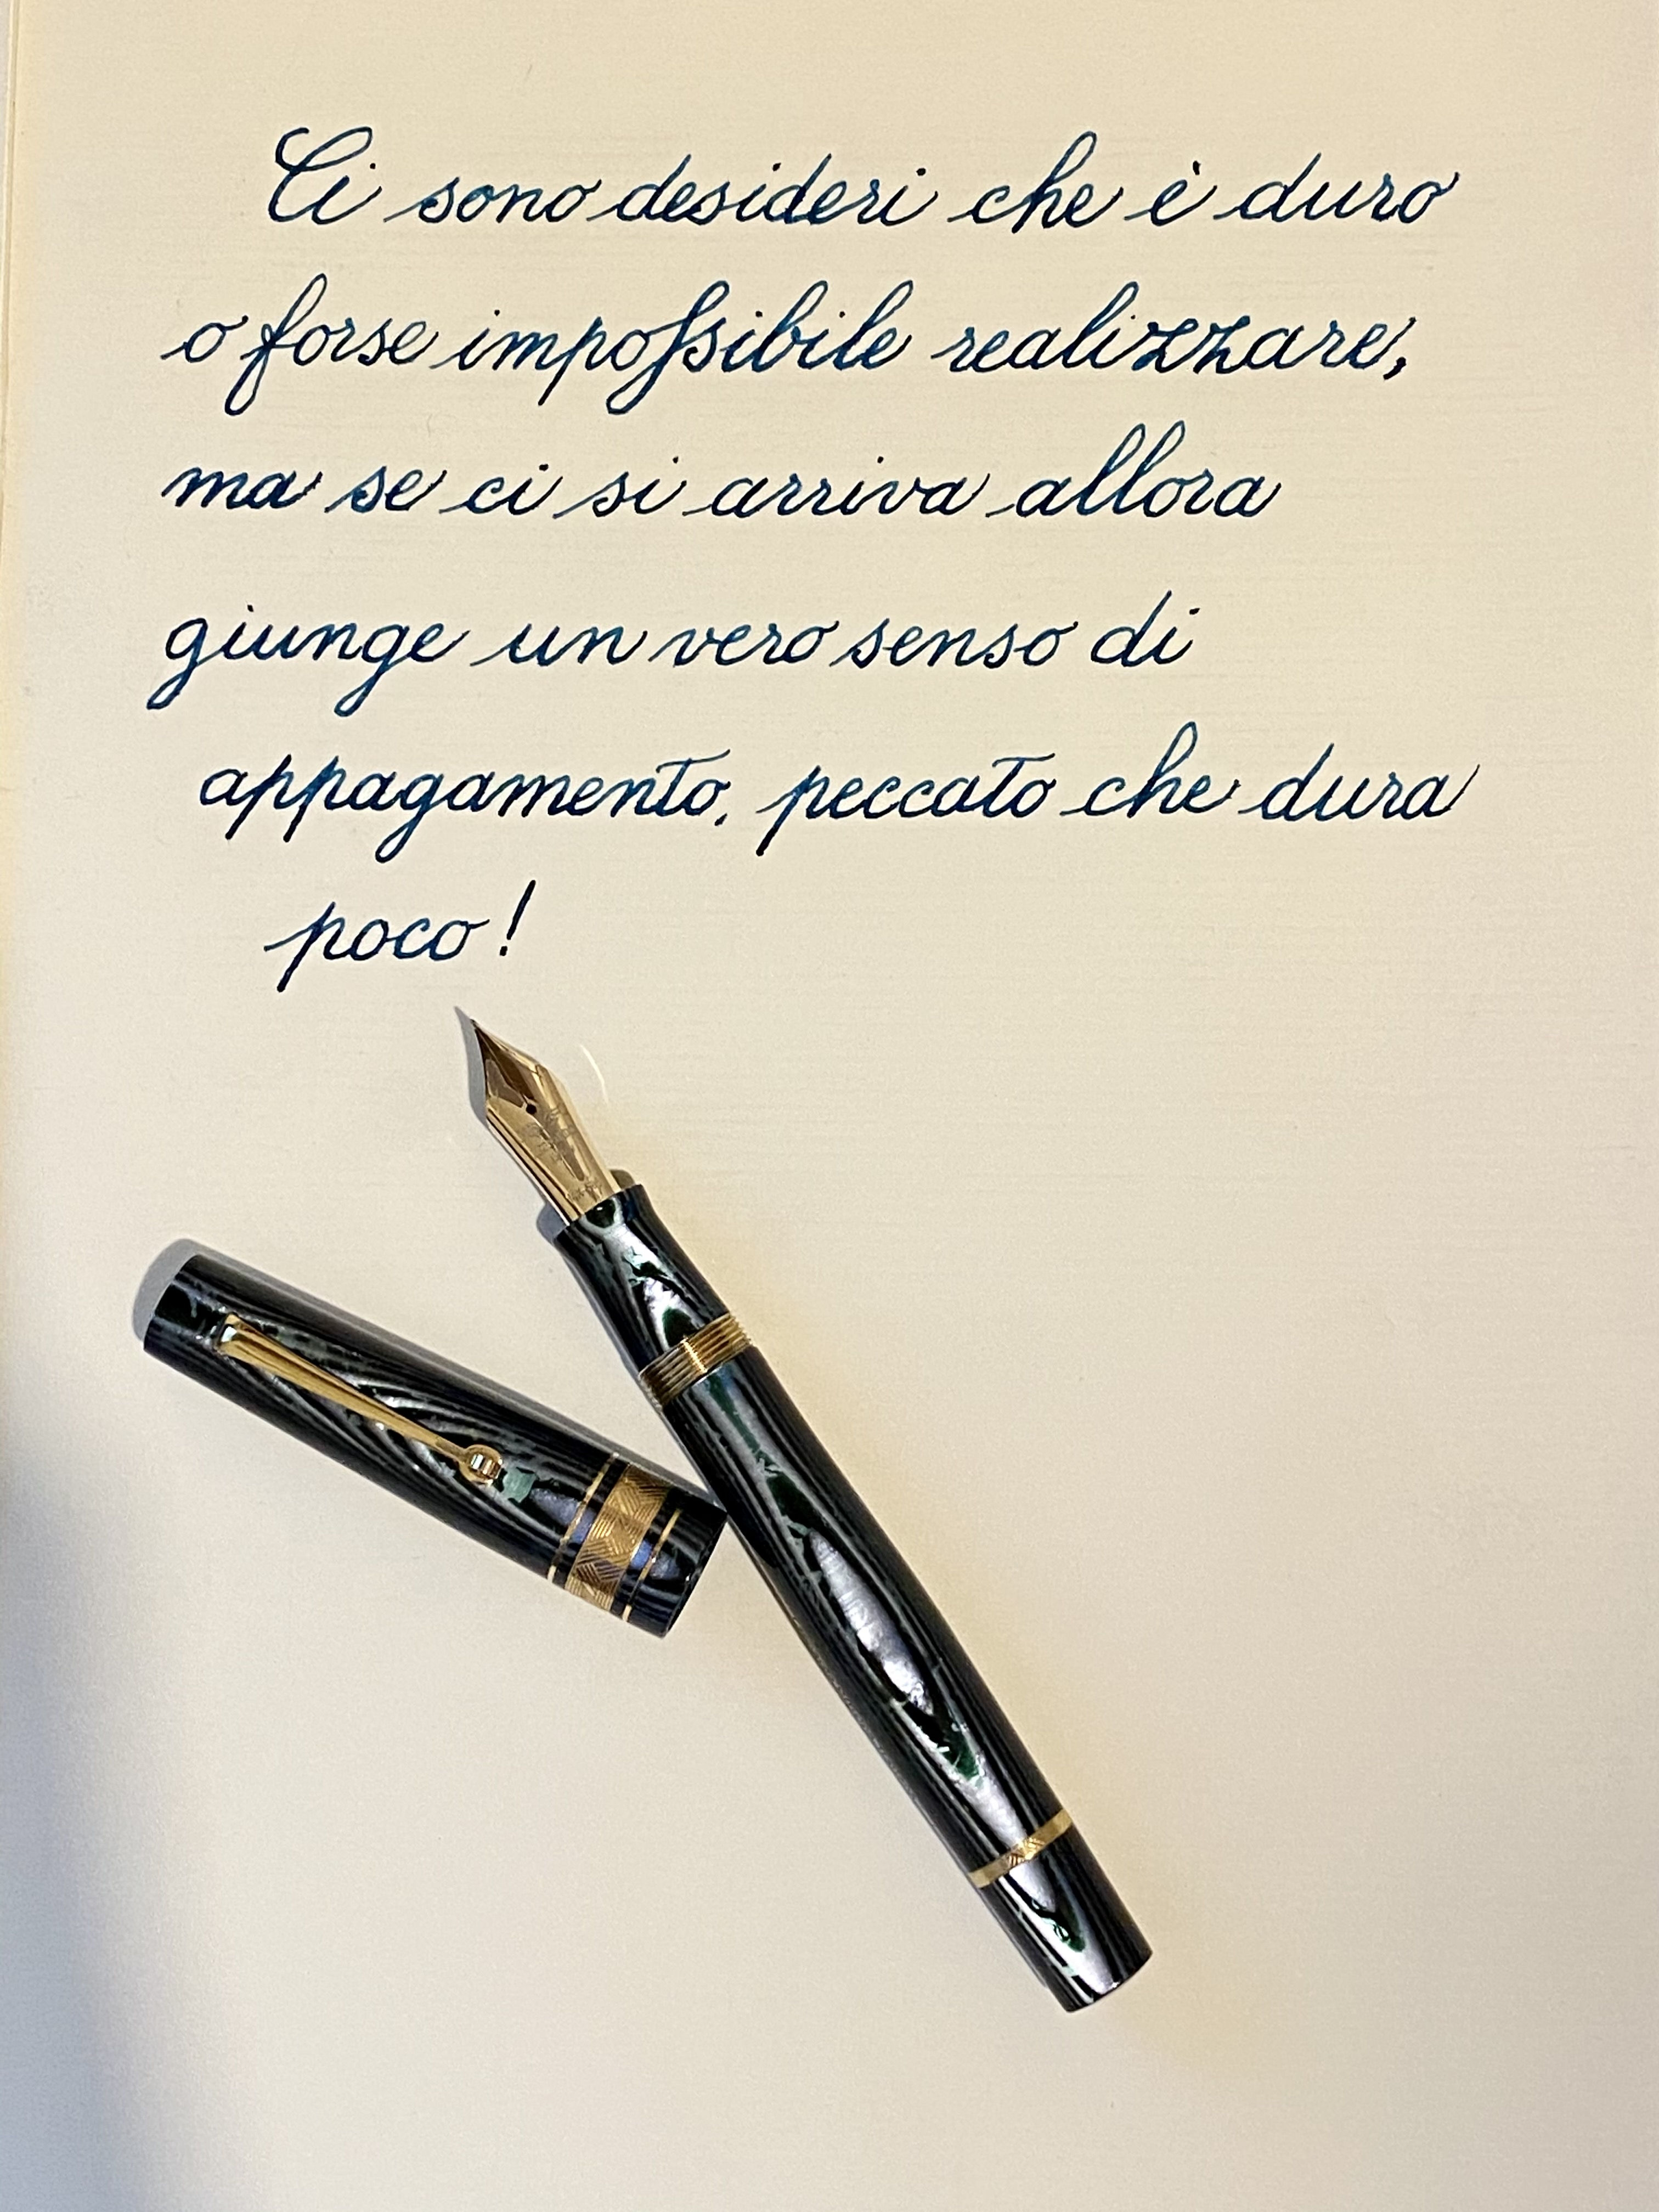 Ci sono desideri che è duro
o forse impoſsibile realizzare,
ma se ci si arriva allora
giunge un vero senso di
appagamento, peccato che dura
poco!